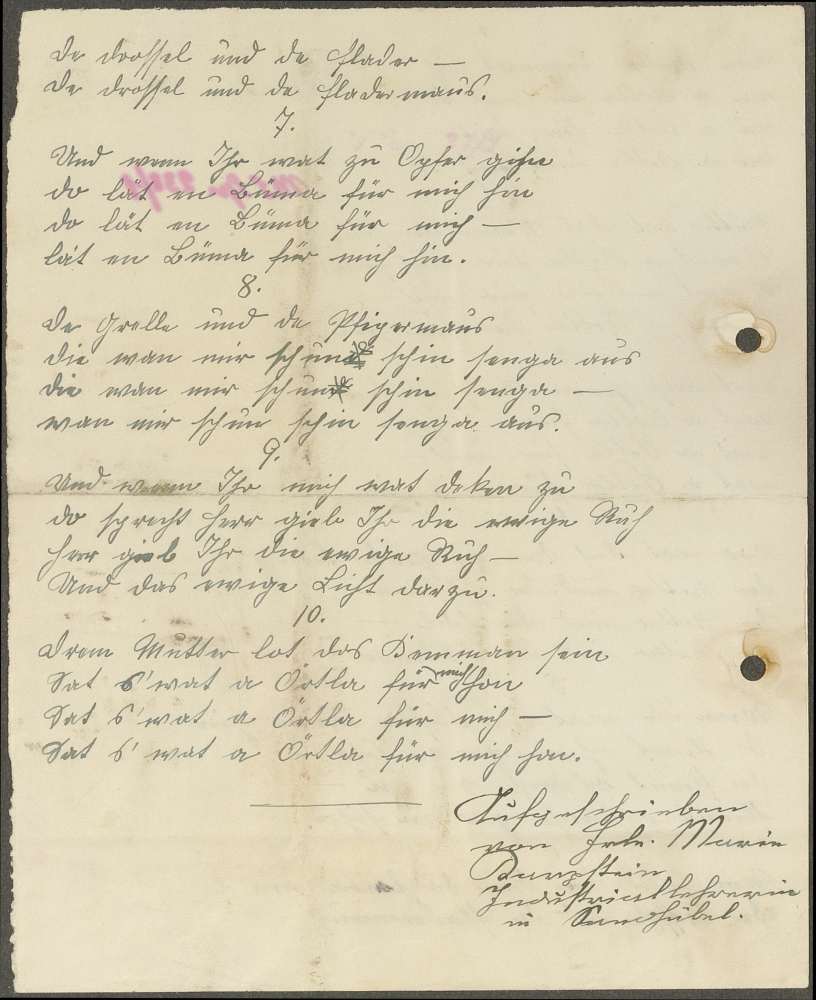 De drossel und de flader —
De drossel und da fladermaus.
7.
Und wenn Ihr wat zu Opfer gihn
do lät en Büma für mich hin
do lät en Büma für mich —
lät en Büma für mich hin.
8.
De Grelle und de Pfigermaus
die wan mir schun schin senga aus
die wan mir schun schin senga —
wan mir schun schin senga aus.
9.
Und wenn Ihr mich wat deken zu
do sprecht Herr gieb Ihr die ewige Ruh
Herr gieb Ihr die ewige Ruh —
Und das ewige Licht darzu.
10.
Drem Mutter lot das Kemman sein
Sat s'wat a Örtla für mich hon
Sat s'wat a Örtla für mich —
Sat s'wat a Örtla für mich hon.
Aufgeschrieben
von Frln. Marie
Industriallehrerin
in Sandhübel.